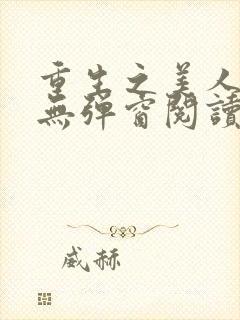 重生之美人
無彈窗閱讀
威赫